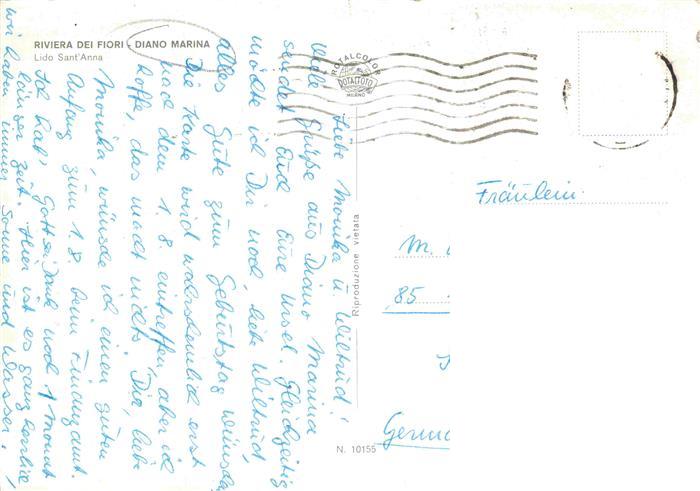 RIVIERA DEI FIORI - DIANO MARINA
Lido Sant'Anna
ROTALCOLOR
ROTALFOTO
MILANO
Riproduzione vietata
N. 10155
Liebe Monika u. Wiltrud!
Viele Grüße aus Diano Marina
sendet Euch Eure Ursel. Gleichzeitig
möchte ich Dir noch, liebe Wiltrud,
alles Gute zum Geburtstag wünschen
Die Karte wird wahrscheinlich erst
nach dem 1.8. eintreffen, aber ich
hoffe, das macht nichts. Dir, liebe
Monika, wünsche ich einen guten
Anfang zum 1.8. beim Finanzamt.
Ich hab' Gott sei Dank noch 1 Monat
länger Zeit. Hier ist es ganz herrlich,
wir haben immer Sonne und Wasser.
Fräulein
M.
85
Germ